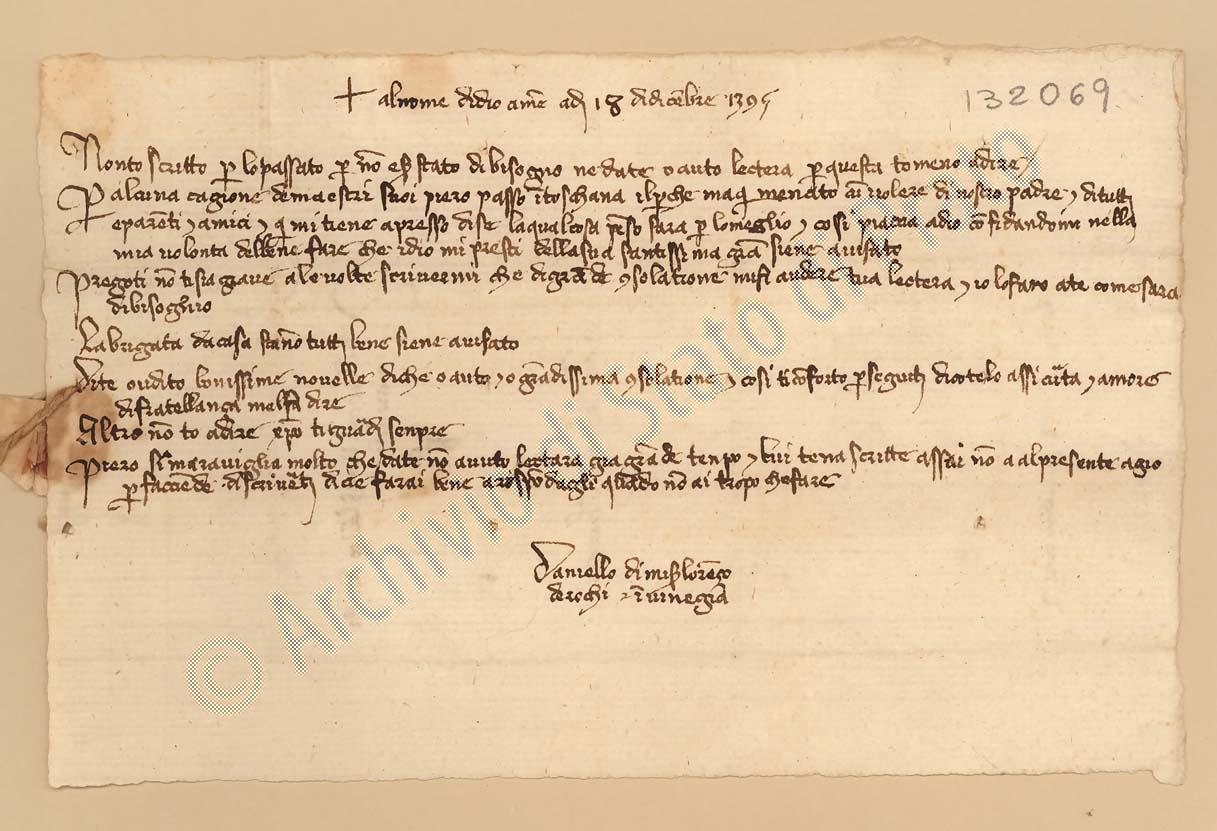 + alnome didio ame adi 18 didicenbre 1395
132069
Nonto scritto p lopassato p no esser stato di bisogno ne date o auto lectera p questa tomeno adire
P alcuna cagione demaestri suoi piero passo itoschana ilpche maqui menato cui volere di nostro padre & ditutti
e parenti & amici & q mi tiene apresso dise laqualcosa penso sara p lomeglio & cosi piaccia adio confidandomi nella
mia volonta delbene fare che idio mi presti dellasua santissima gra siene avisato
Pregoti no tisia grave alevolte scrivermi che digrade 9solatione mifi avedere tua lectera & io lofaro ate come sara
dibisogno
Labrigata dacasa stano tutti bene siene avisato
Dite o udito bonissime novelle diche o auto & o gradissima 9solatione & cosi ti conforto p seguiti dicotelo assicurta & amore
di fratellanca melfa dire
Altro no to adire xpo ti guardi senpre
Piero si maraviglia molto che date no avuto lectara gia grade tenpo & lui tena scritte assai no a alpresente agio
p faccende discriverti dicie farai bene a rispodagli quado no ai tropo chefare
Daniello di miss lorenco
derochi i vinegia
© Archivio di Stato di Prato